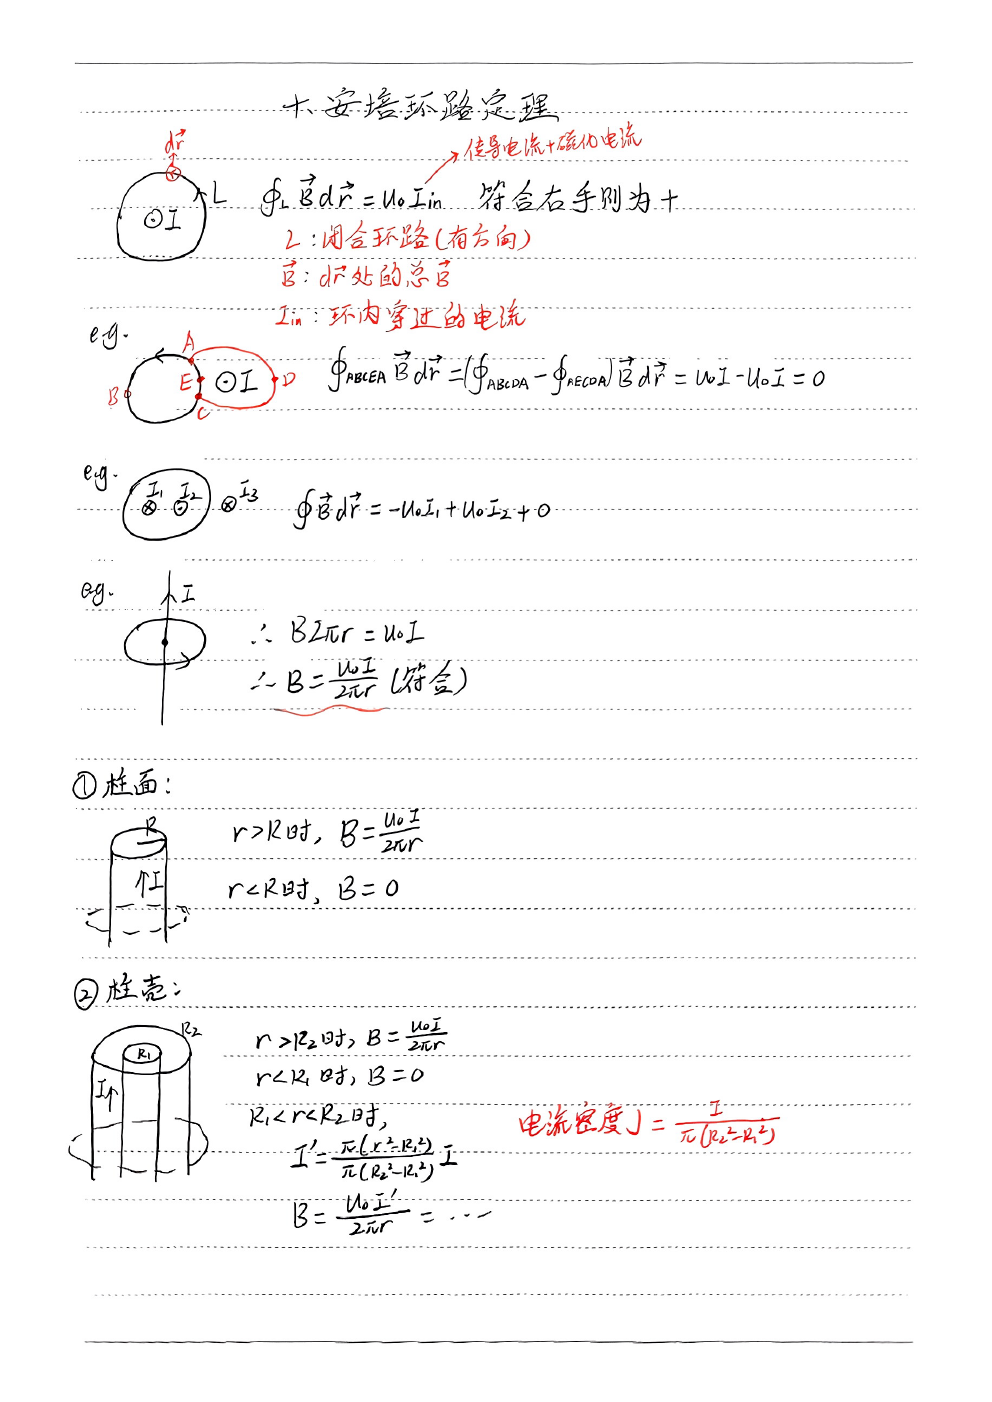 十、安培环路定理
传导电流+磁化电流
dr⃗
L
⊙I
∮L B⃗dr⃗ = u₀Iin 符合右手则为+
L:闭合环路(有方向)
B⃗:dr⃗处的总B⃗
Iin:环内穿过的电流
e.g.
A
B
E
⊙I
D
C
∮ABCEA B⃗dr⃗ = (∮ABCDA - ∮AECDA) B⃗dr⃗ = u₀I - u₀I = 0
e.g.
I₁ I₂ I₃
∮B⃗dr⃗ = -u₀I₁ + u₀I₂ + 0
eg.
I
∴ B2πr = u₀I
∴ B = u₀I/2πr (符合)
①柱面:
R
↑I
r>R时, B = u₀I/2πr
r<R时, B = 0
②柱壳:
R₂
R₁
I↑
r>R₂时, B = u₀I/2πr
r<R₁时, B = 0
R₁<r<R₂时,
电流密度J = I/π(R₂²-R₁²)
I' = π(r²-R₁²)/π(R₂²-R₁²) I
B = u₀I'/2πr = ...